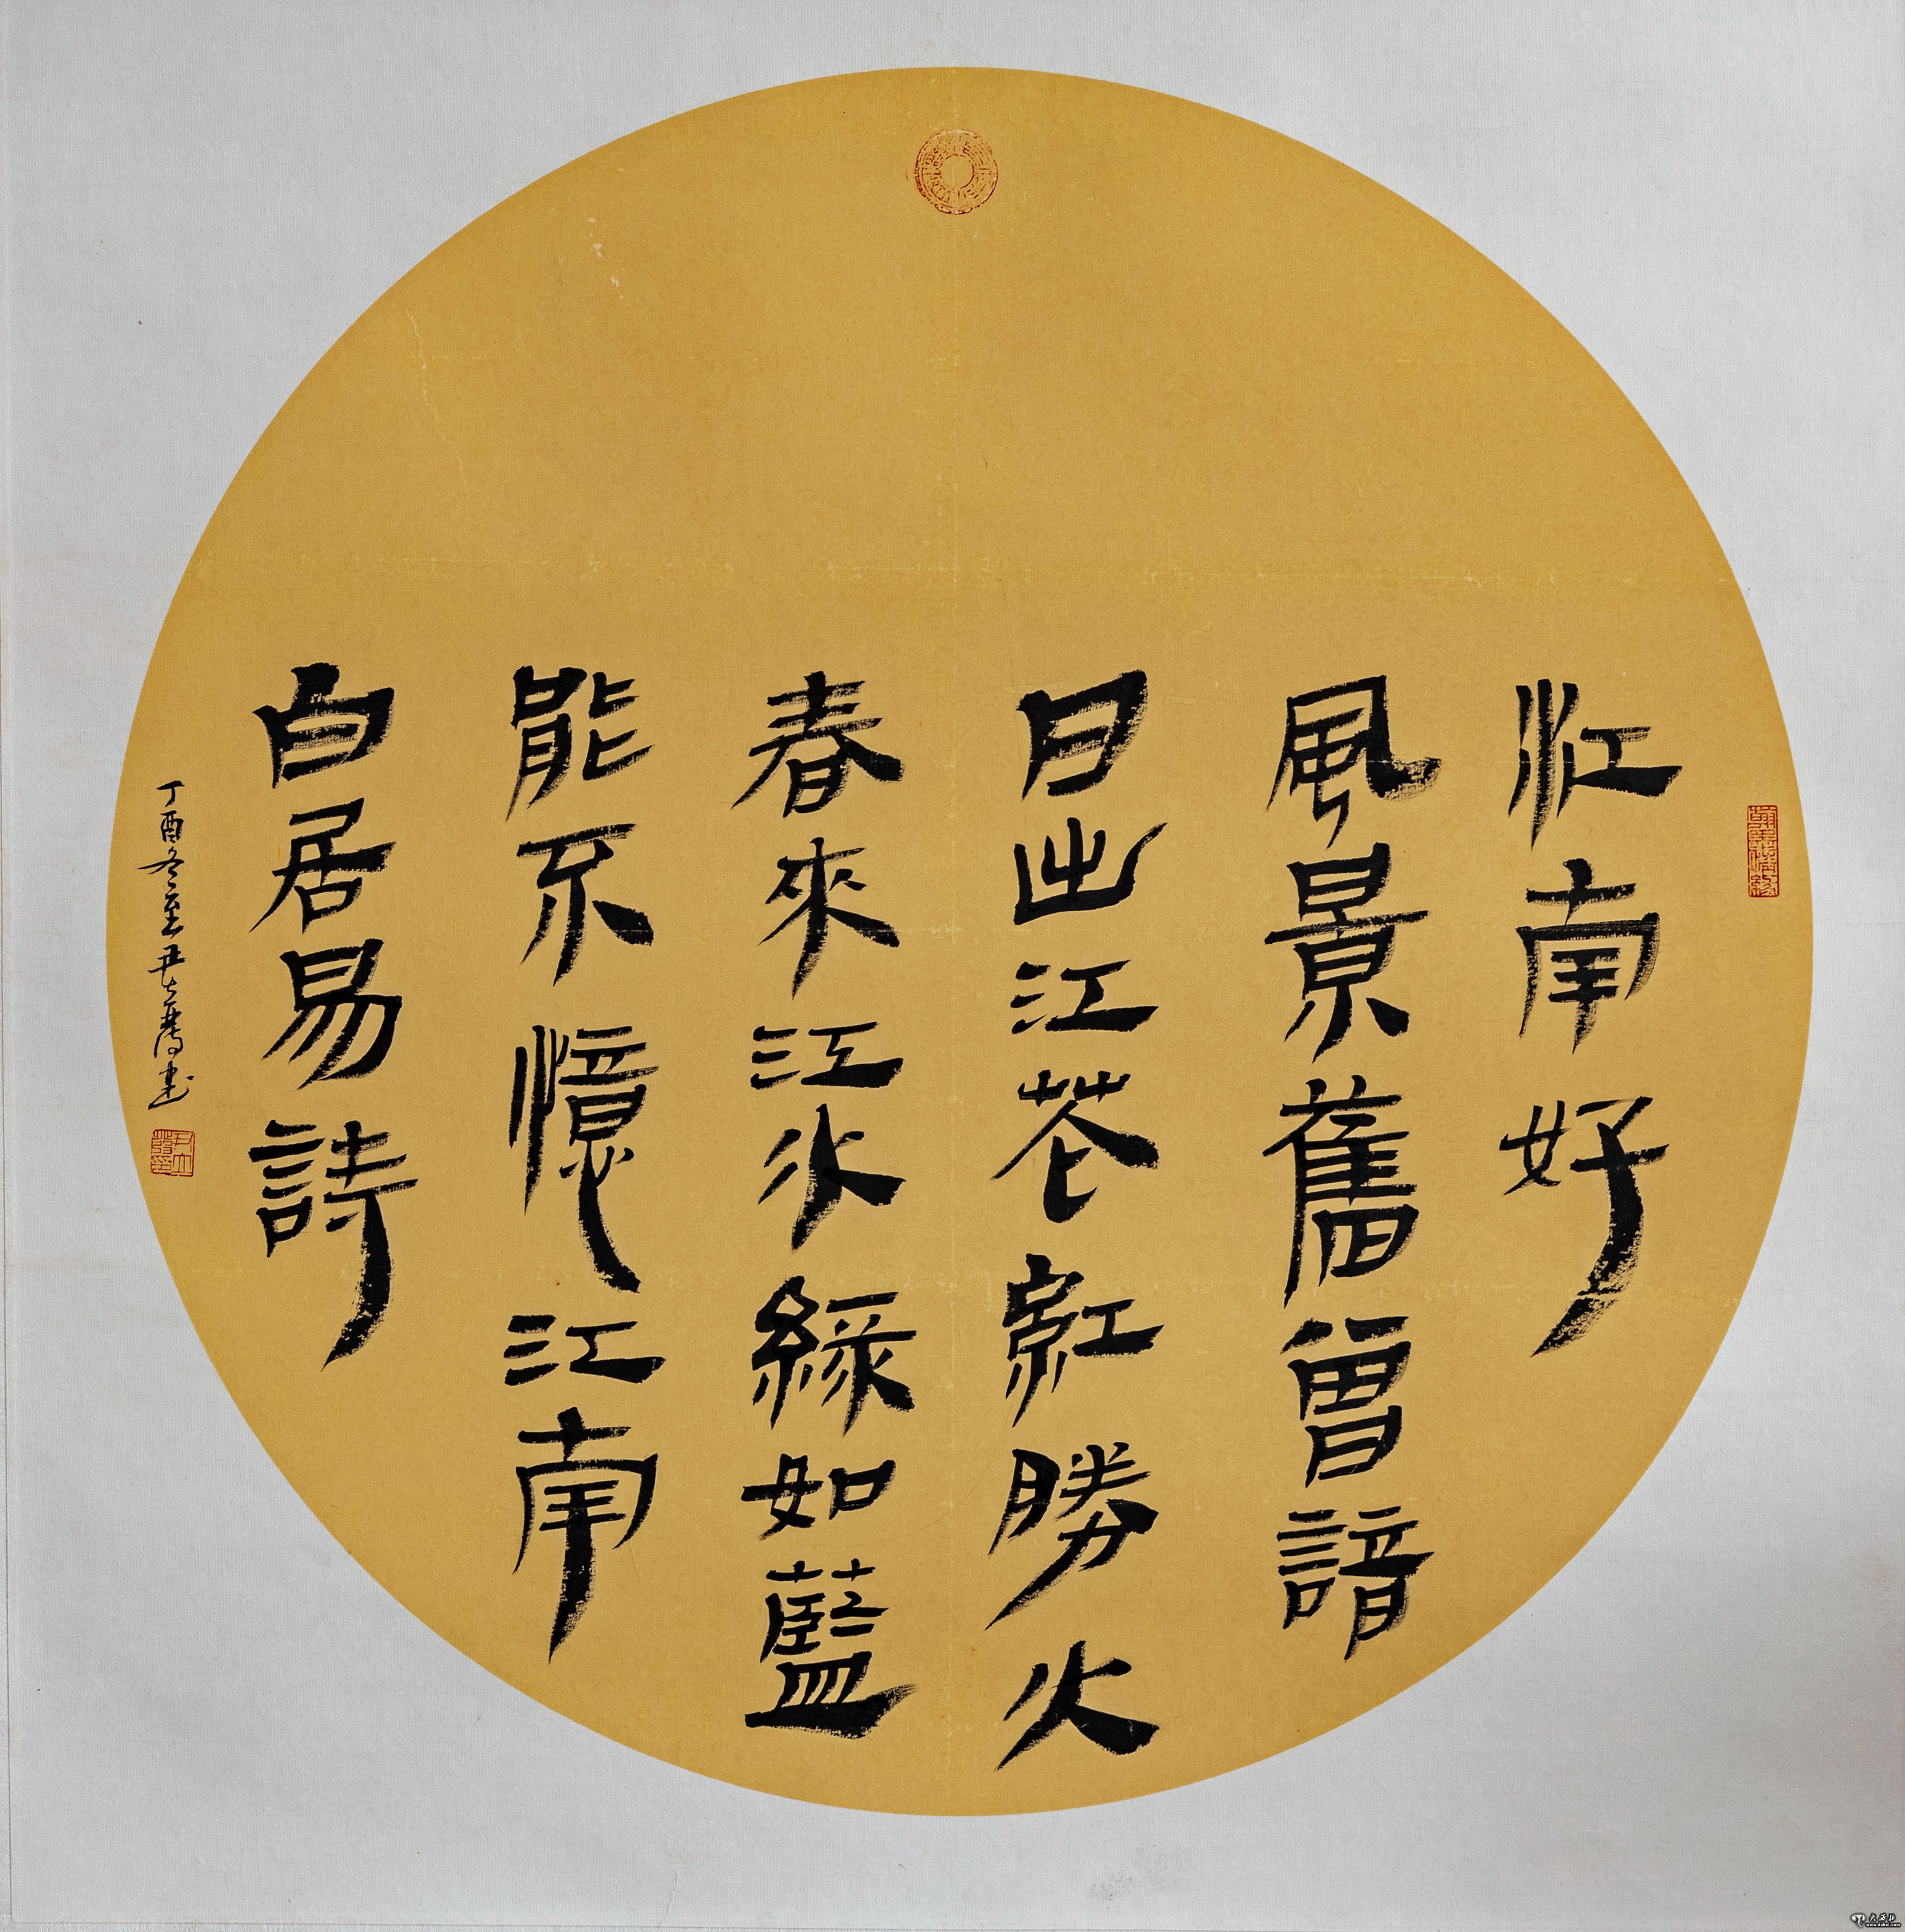 江南好
風景舊曾諳
日出江花紅勝火
春來江水綠如藍
能不憶江南
白居易詩
丁酉冬至尹大為書